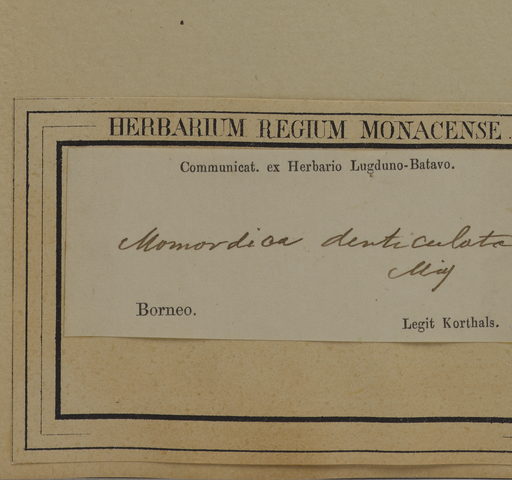 HERBARIUM REGIUM MONACENSE.
Communicat. ex Herbario Lugduno-Batavo.
Momordica denticulata
Miq
Borneo.
Legit Korthals.